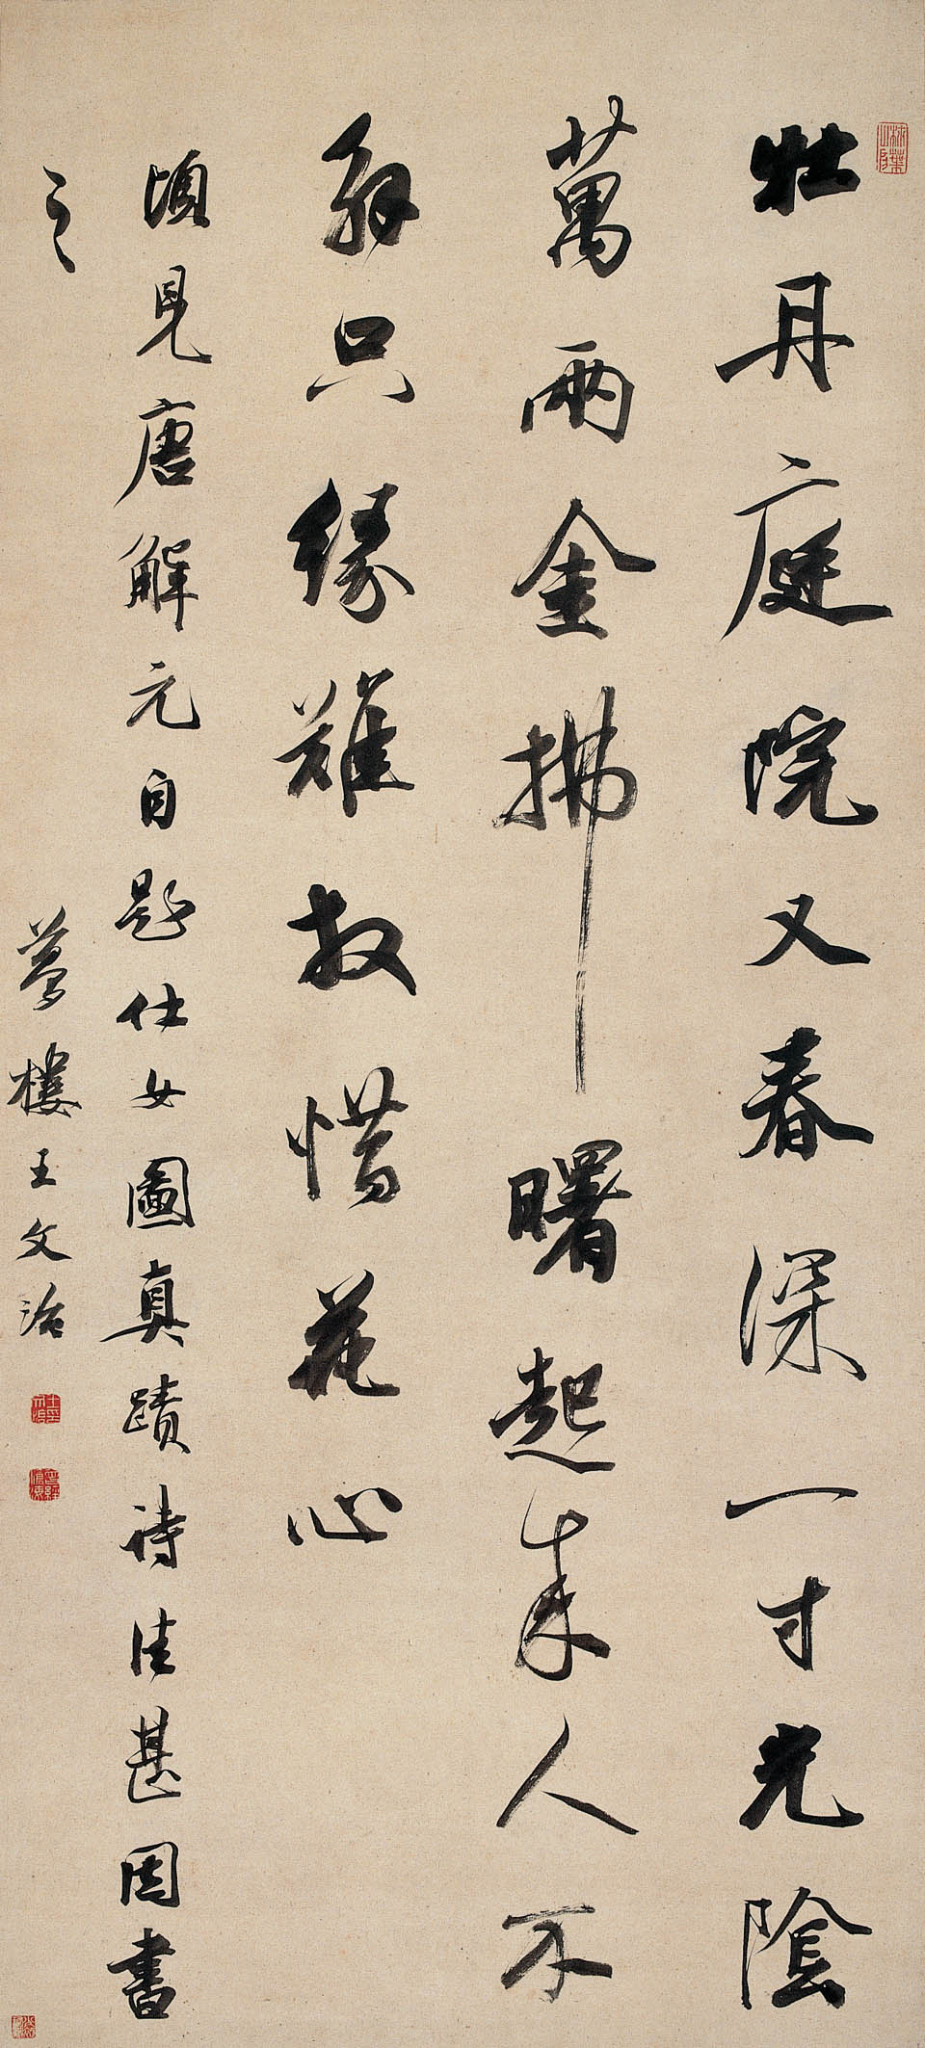 柿葉山房
牡丹庭院又春深一寸光陰
萬兩金拂曙起來人不
解只緣難放惜花心
頃見唐解元自題仕女圖真蹟詩佳甚因書
之
夢樓王文治